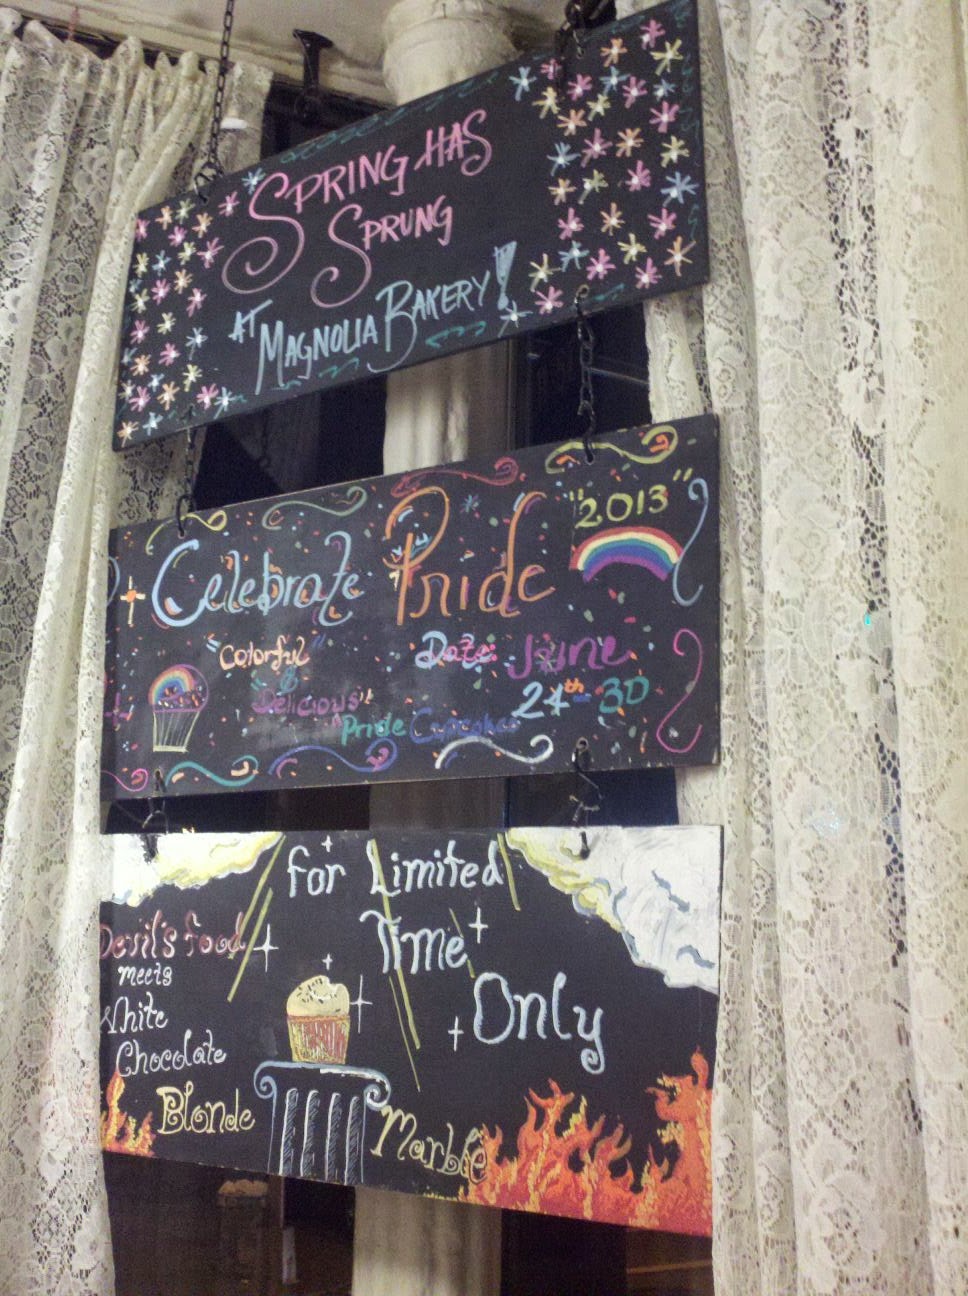 SPRING HAS
SPRUNG
AT MAGNOLIA BAKERY!
Celebrate Pride "2013"
"Colorful"
&
Delicious"
Pride Cupcakes
Date: June
24th - 30
for Limited
Time
Only
Devil's food
meets
White
Chocolate
Blonde
Marble